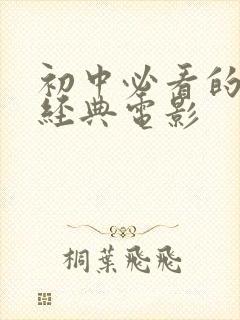 初中必看的
經典電影
桐葉飛飛